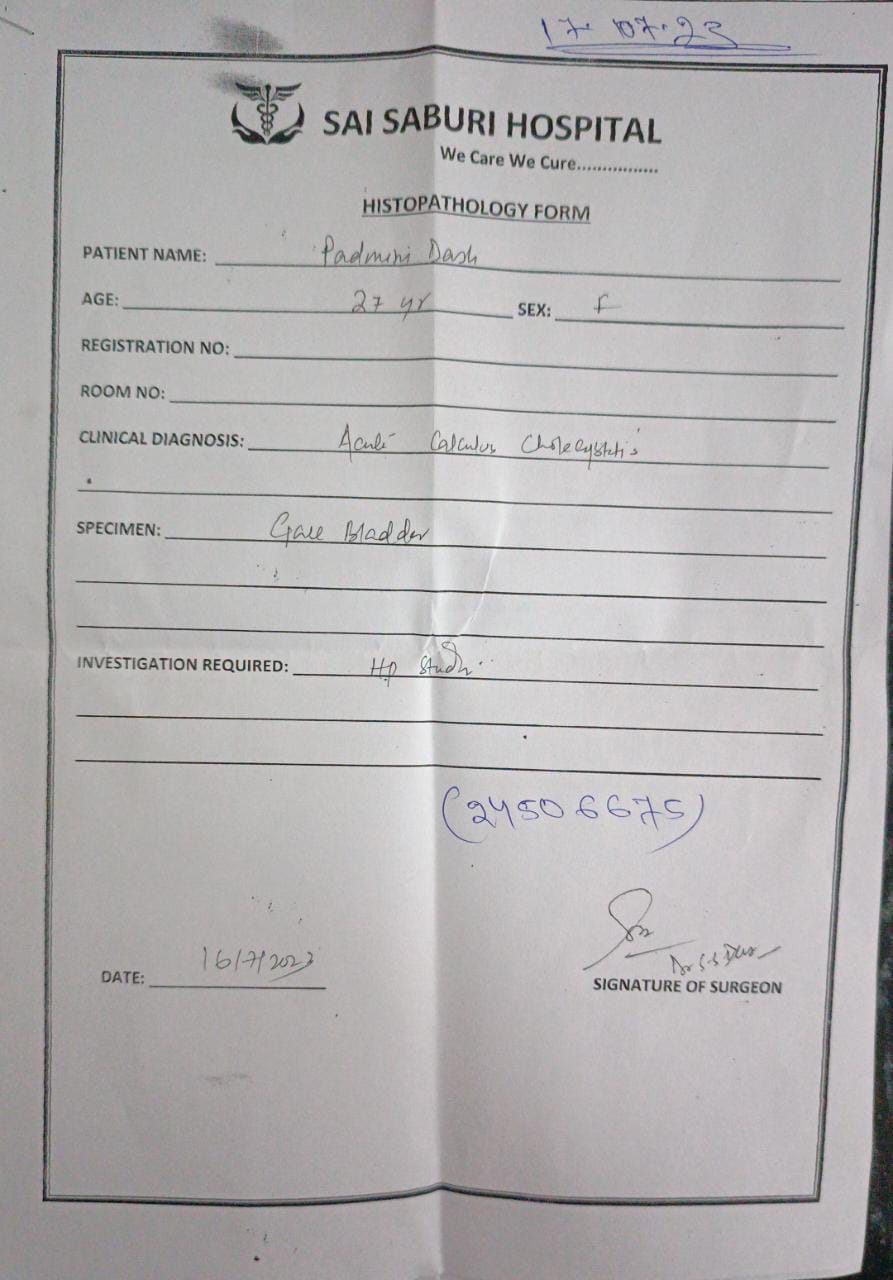 17.07.23
SAI SABURI HOSPITAL
We Care We Cure................
HISTOPATHOLOGY FORM
PATIENT NAME: Padmini Dash
AGE: 27 yr SEX: F
REGISTRATION NO:
ROOM NO:
CLINICAL DIAGNOSIS: Acute Calculus Cholecystitis
SPECIMEN: Gall Bladder
INVESTIGATION REQUIRED: H.P Study
(24506675)
16/7/2023
Dr S.S Das
DATE:
SIGNATURE OF SURGEON